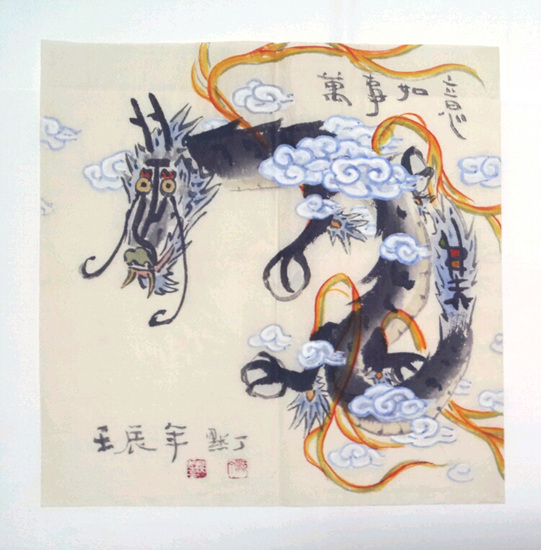 萬事如意
壬辰年 默丁